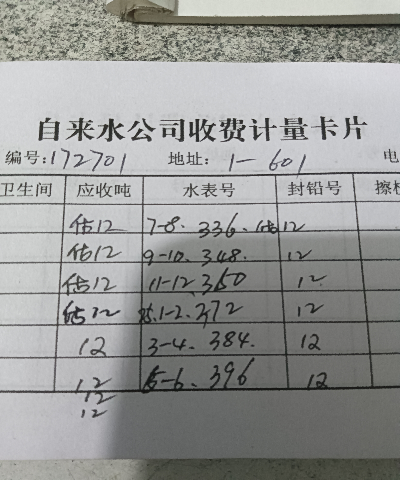 自来水公司收费计量卡片
编号:172701 地址: 1-601 电
卫生间 应收吨 水表号 封铅号 擦
估12 7-8. 336. 估12
估12 9-10. 348. 12
估12 11-12. 360 12
估12 25.1-2. 372 12
12 3-4. 384. 12
12 5-6. 396 12
12
12